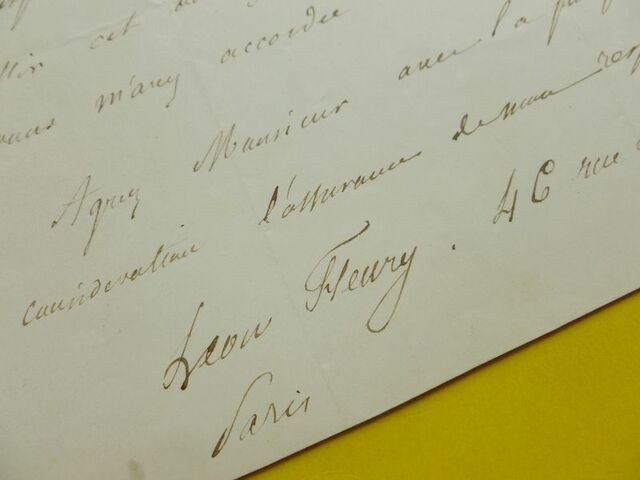 cet
vous m'avez accordée
Agréez Monsieur avec la
considération l'assurance de mon
Léon Fleury. 46 rue
Paris